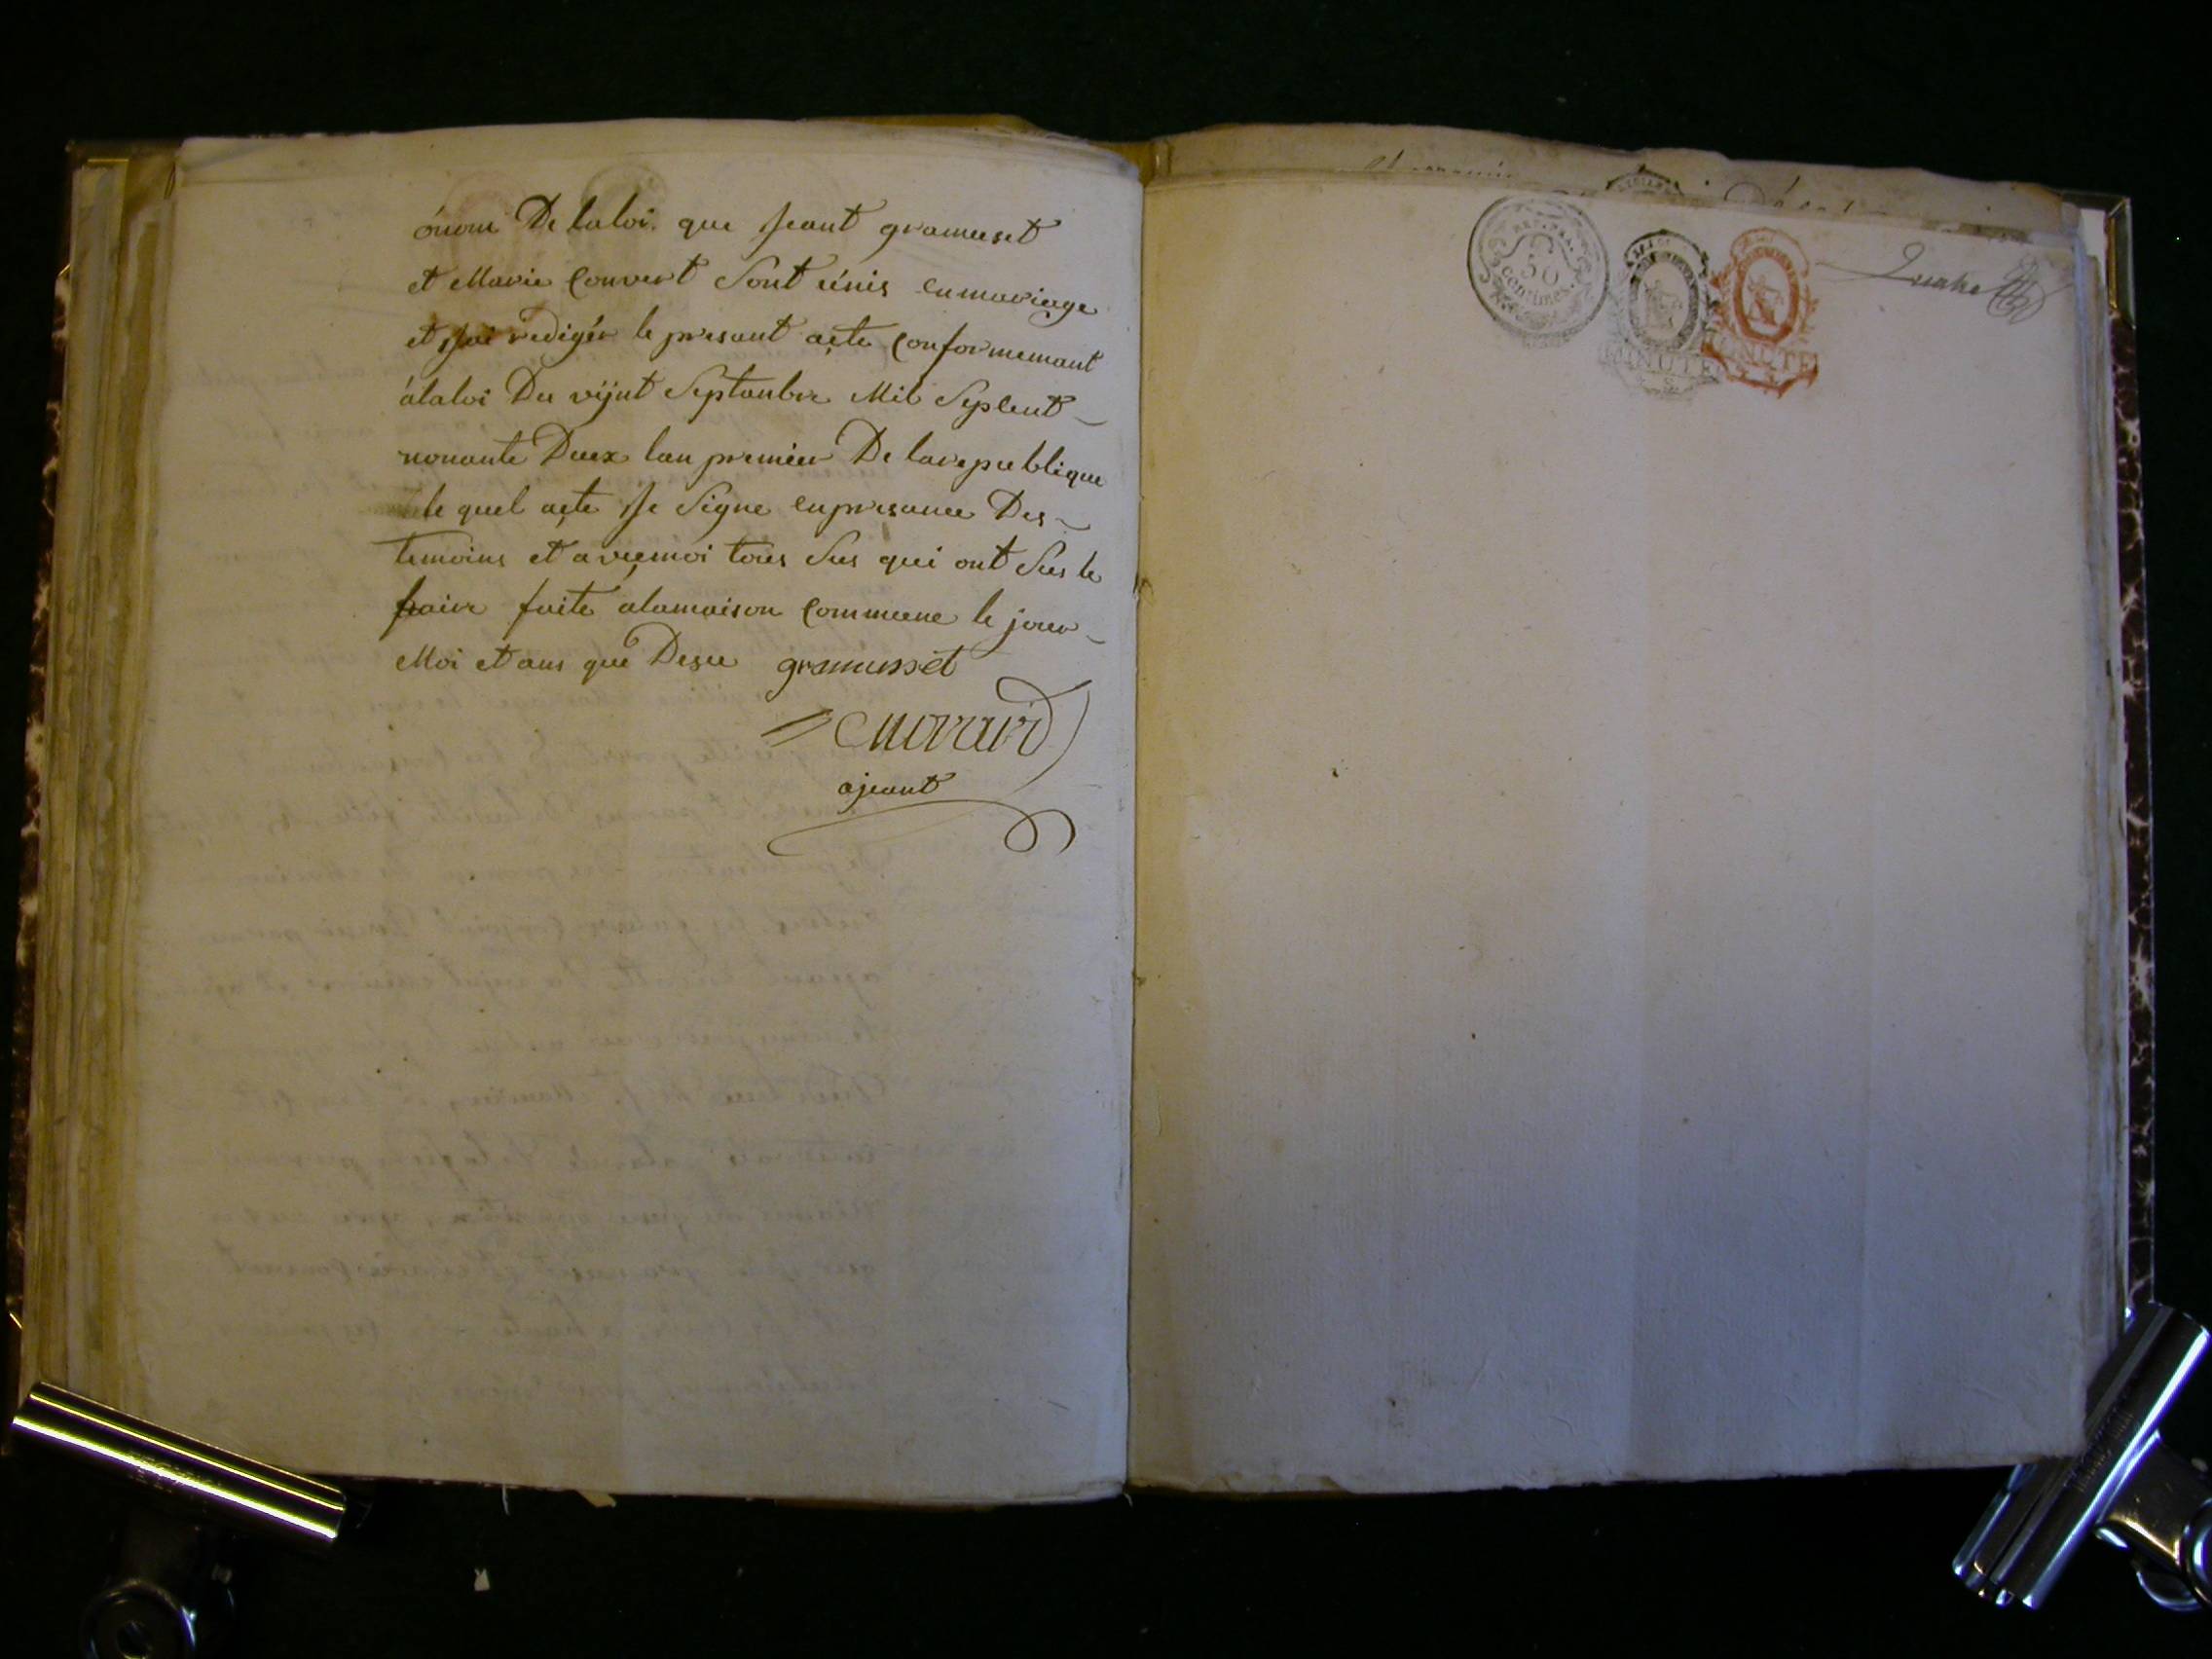 ónom De laloi. que Jeant gramuset
et Marie Couvert Sont únis en mariage
et Jai redigér le presant acte Conformemant
álaloi Du vijnt Septanbre Mil Sepcent
nonante Deux lan premier De larepublique
le quel acte Je Signe en presance Des
temoins et avecmoi tous Sus qui ont Sus le
faire faite alamaison Commune le jour
Moi et ans que Desu gramusset
Morard
ajeant
REP. FRA.
50
centimes.
MINUTE
MINUTE